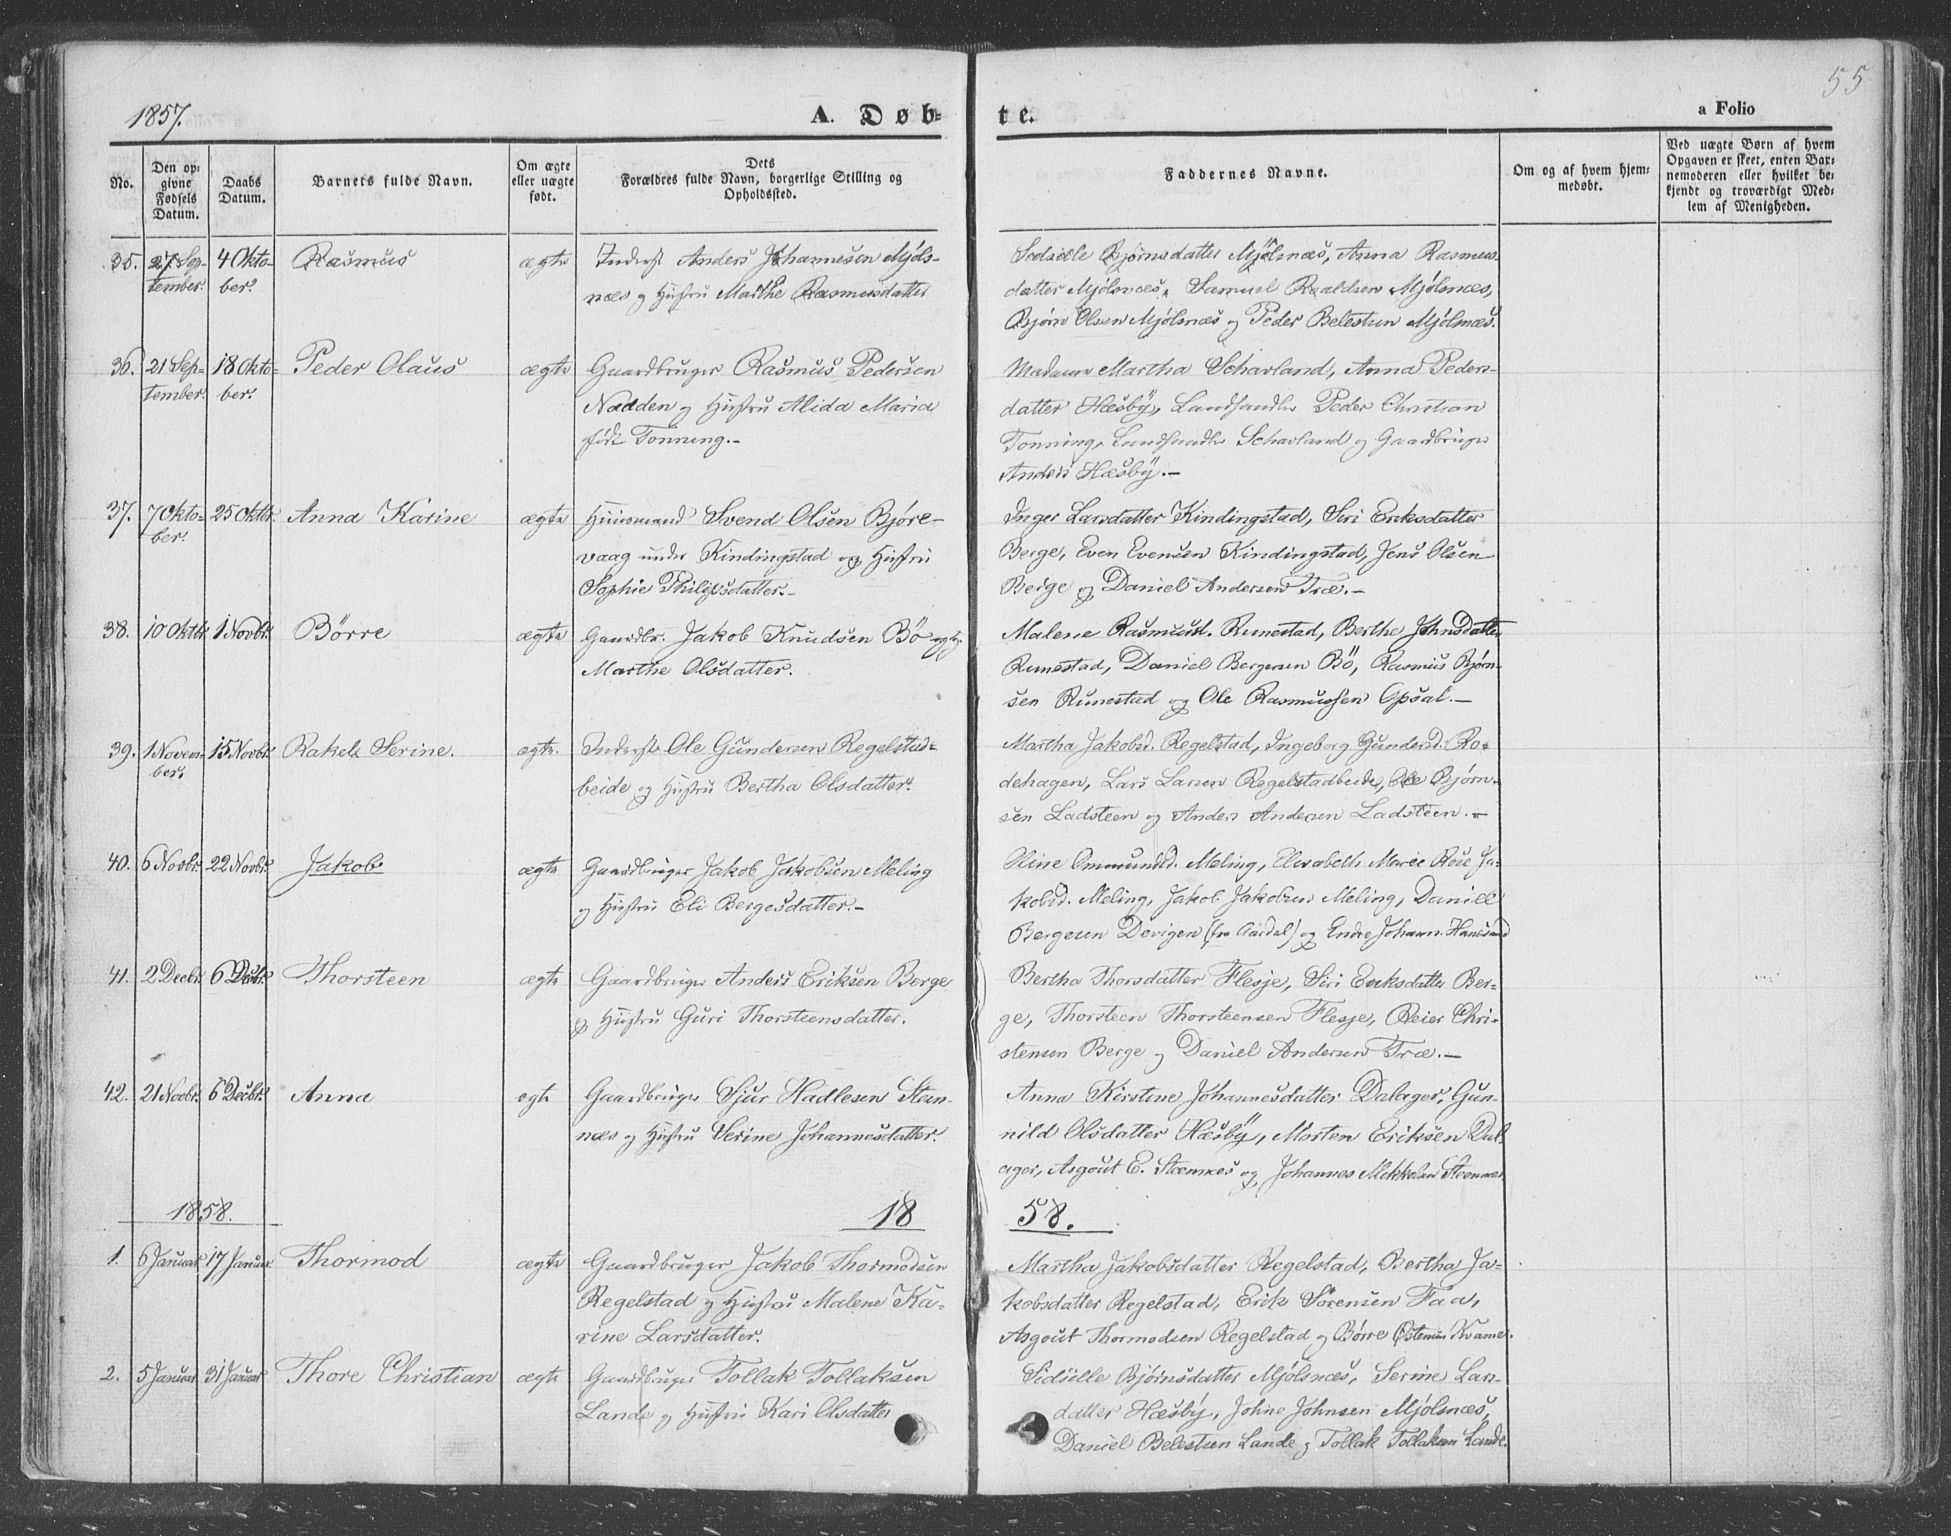 55
1857.
A. Døb=
te.
a Folio
No.
Den op=
givne
Fødsels
Datum.
Daabs
Datum.
Barnets fulde Navn.
Om ægte
eller uægte
født.
Dets
Forældres fulde Navn, borgerlige Stilling og
Opholdssted.
Faddernes Navne.
Om og af hvem hjem=
medøbt.
Ved uægte Børn af hvem
Opgaven er skeet, enten Bar=
nemoderen eller hvilket be=
kjendt og troværdigt Med=
lem af Menigheden.
35. 27 Sep- 4 Okto- Rasmus ægte Inderst Anders Johannesen Mjøls-
tember. ber. næs og Hustru Marthe Rasmusdatter
Sidselle Bjørnsdatter Mjølsnæs, Anna Rasmus-
datter Mjølsnæs, Samuel Roaldsen Mjølsnæs,
Bjørn Olsen Mjølsnæs og Peder Belestsen Mjølsnæs.
36. 21 Sep- 18 Okto- Peder Olaus ægte Gaardbruger Rasmus Pedersen
tember. ber. Nædden og Hustru Alida Maria
født Tonning.-
Madame Martha Schavland, Anna Peders-
datter Hæsbÿ, Landhandler Peder Christian
Tonning, Landhandler Schavland og Gaardbruger
Anders Hæsbÿ.-
37. 7 Okto- 25 Oktbr. Anna Karine ægte Huusmand Svend Olsen Bjøre-
ber. vaag under Kindingstad og Hustru
Sophie Philipsdatter.-
Inger Larsdatter Kindingstad, Siri Eriksdatter
Berge, Even Evensen Kindingstad, Jens Olsen
Berge og Daniel Andersen Træ.-
38. 10 Oktbr. 1 Novbr. Börre ægte Gaardbr. Jakob Knudsen Bö og Hu.
Marthe Olsdatter.
Malene Rasmusd. Runestad, Berthe Johnsdatter
Runestad, Daniel Bergersen Bö, Rasmus Bjørn-
sen Runestad og Ole Rasmussen Opsal.-
39. 1 Novem- 15 Novbr. Rakel Serine. ægte. Inderst Ole Gundersen Regelstad-
ber. beide og Hustru Bertha Olsdatter.
Martha Jakobsd. Regelstad, Ingeborg Gundersd. Ro-
dehagen, Lars Larsen Regelstadbeide, Ole Bjørn-
sen Ladsteen og Anders Andersen Ladsteen.-
40. 6 Novbr. 22 Novbr. Jakob ægte Gaardbruger Jakob Jakobsen Meling
og Hustru Eli Bergesdatter.-
Oline Ommundsd. Meling, Elisabeth Marie Rose Ja-
kobsd. Meling, Jakob Jakobsen Meling, Daniel
Bergesen Devigen (fra Aardal) og Endre Johann. Hanesand
41. 2 Decbr. 6 Decbr. Thorsteen ægte Gaardbruger Anders Eriksen Berge
og Hustru Guri Thorsteensdatter.
Bertha Thorsdatter Flesje, Siri Eriksdatter Ber-
ge, Thorsteen Thorsteensen Flesje, Reier Chri-
stensen Berge og Daniel Andersen Træ.-
42. 21 Novbr. 6 Decbr. Anna ægte Gaardbruger Sjur Hadlesen Stæn-
næs og Hustru Serine Johannesdatter.
Anna Kirstine Johannesdatter Dalager, Gun-
nild Olsdatter Hæsbÿ, Morten Eriksen Dal-
ager, Asgout E. Stænnæs og Johannes Mikkelsen Steennæs
1858. 18 58.
1. 6 Januar. 17 Januar. Thormod ægte Gaardbruger Jakob Thormodsen
Regelstad og Hustru Malene Ka-
rine Larsdatter.
Martha Jakobsdatter Regelstad, Bertha Ja-
kobsdatter Regelstad, Erik Sörensen Faa,
Asgout Thormodsen Regelstad og Børre Østensen Kvame.
2. 5 Januar 31 Januar Thore Christian ægte Gaardbruger Tollak Tollaksen
Lande og Hustru Kari Olsdatter
Sidselle Bjørnsdatter Mjølsnæs, Serine Lars-
datter Hæsby, Johne Johnsen Mjølsnæs,
Daniel Belestsen Lande og Tollak Tollaksen Lande.